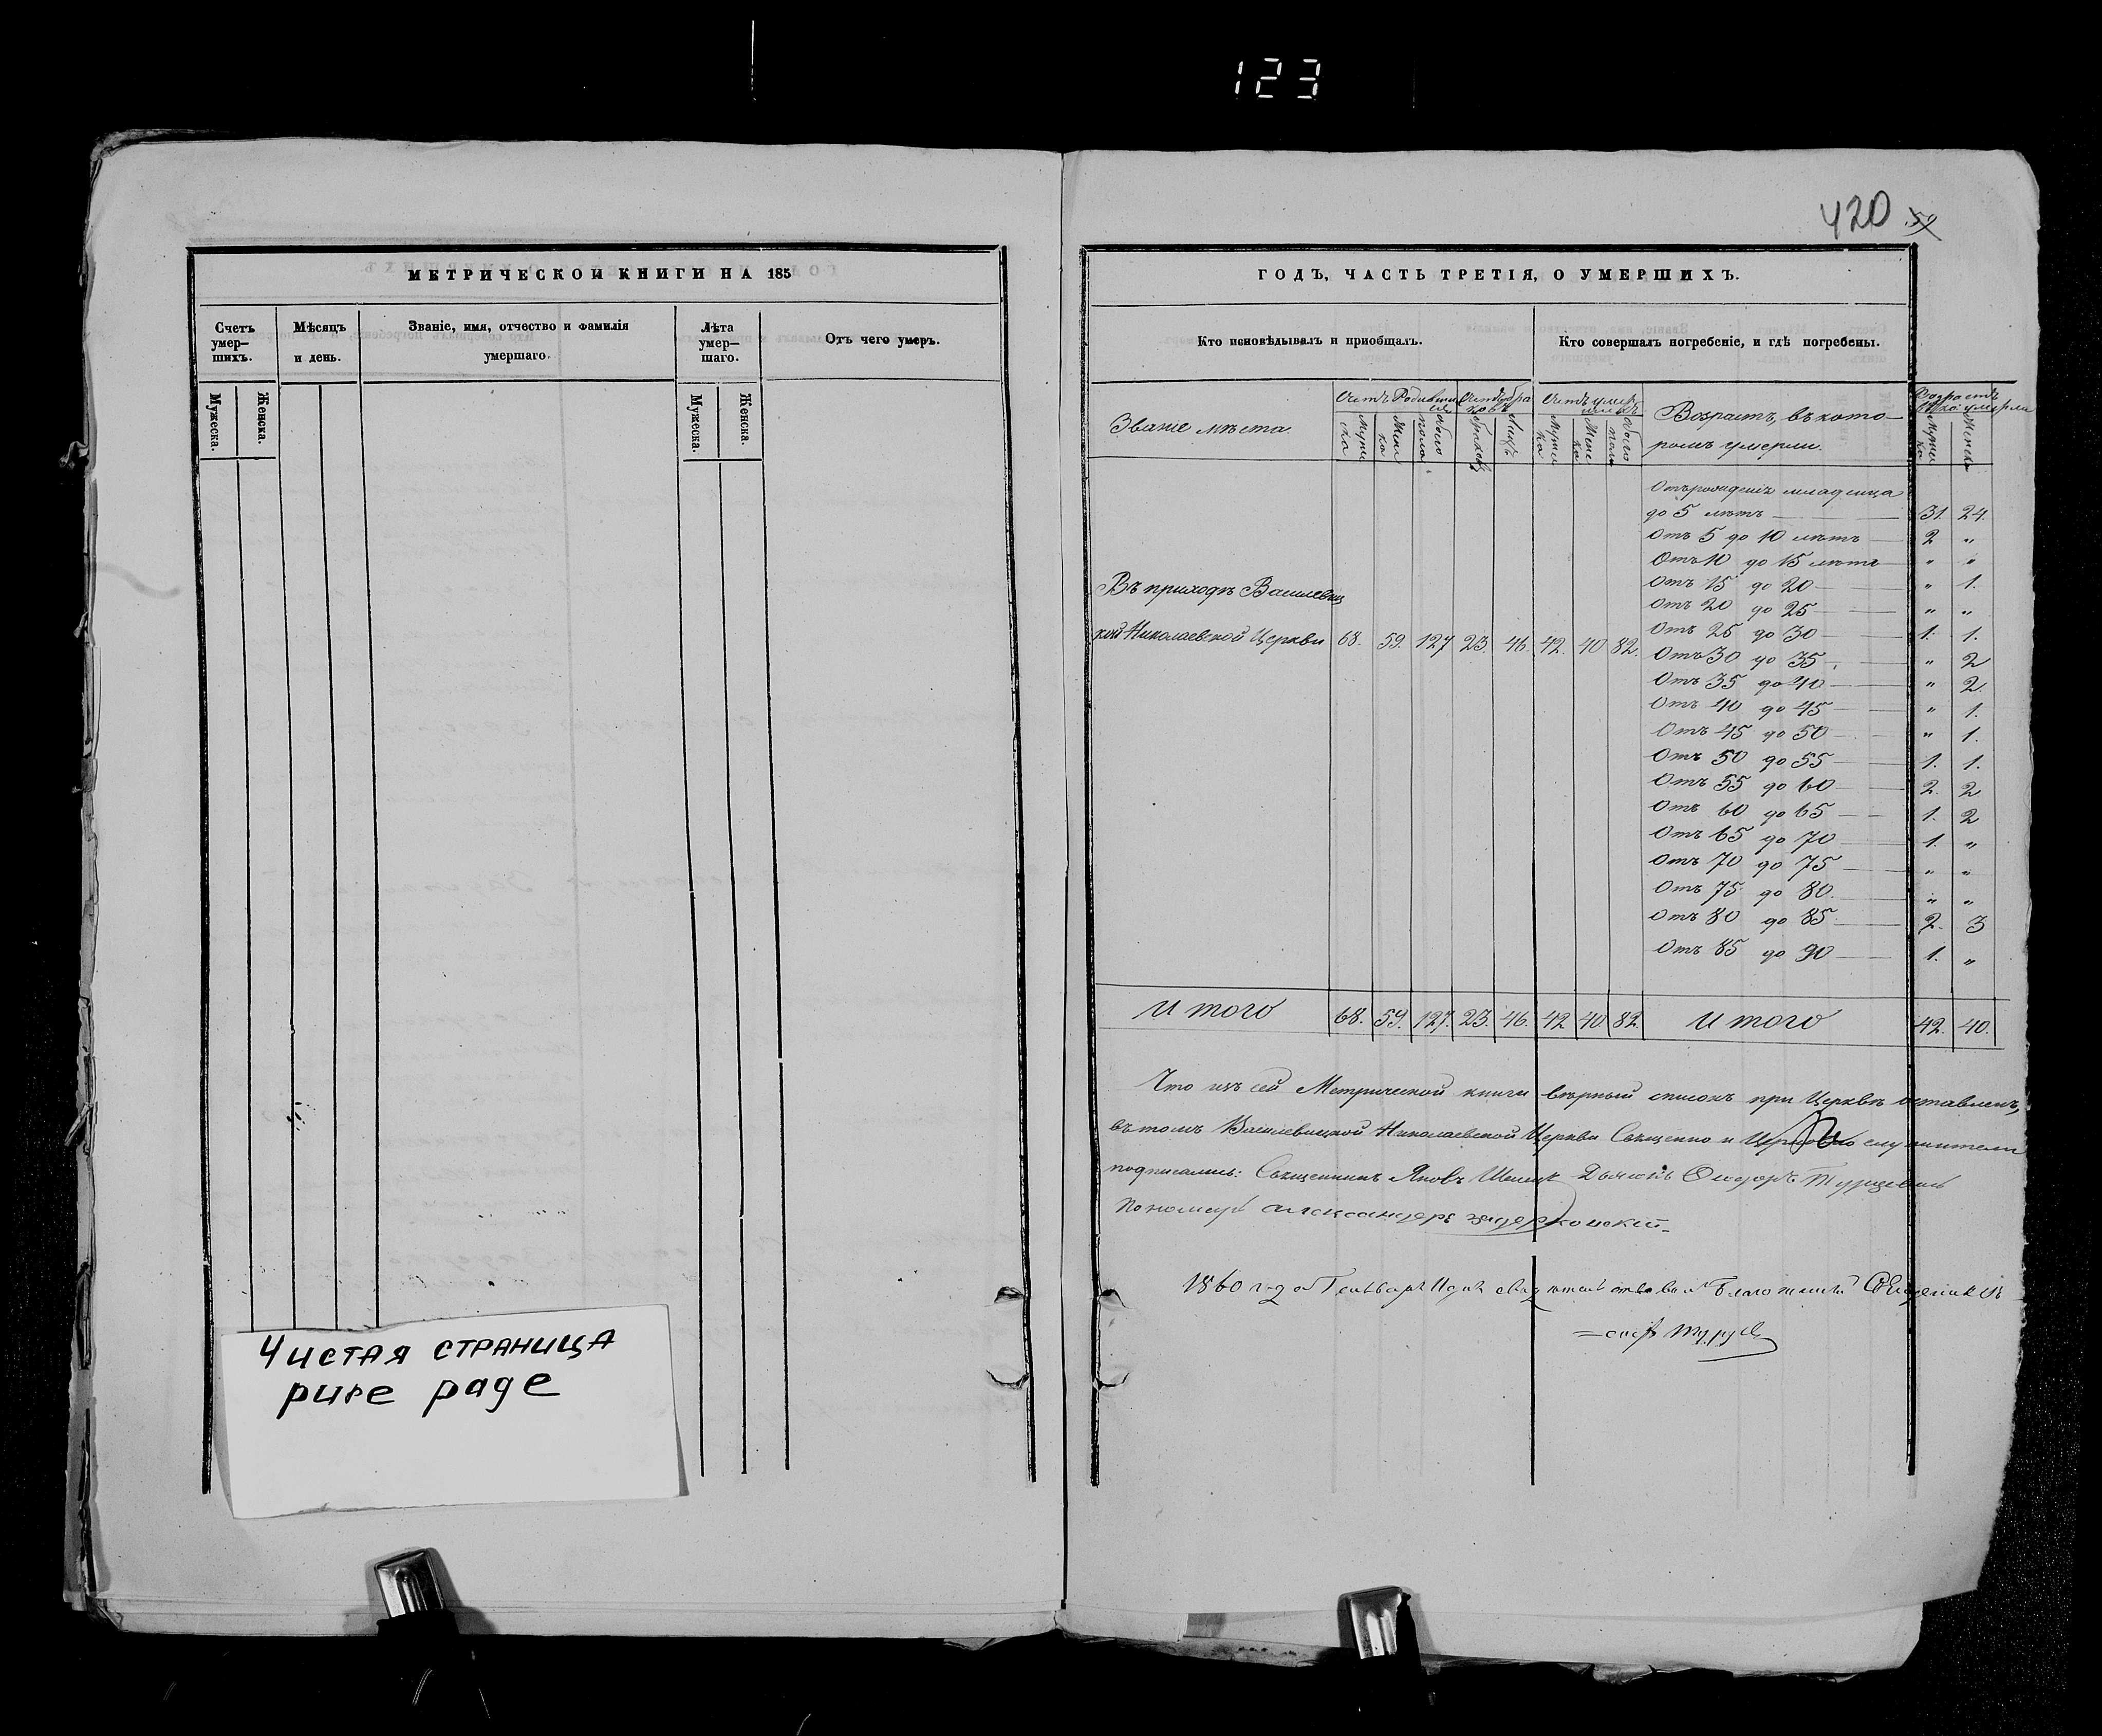 123
420 59
МЕТРИЧЕСКОЙ КНИГИ НА 185
Счетъ умер-шихъ.
Мѣсяцъ и день.
Званіе, имя, отчество и фамилія умершаго.
Лѣта умер-шаго.
Отъ чего умеръ.
Мужеска. Женска. Мужеска. Женска.
Чистая страница
pure page
ГОДЪ, ЧАСТЬ ТРЕТІЯ, О УМЕРШИХЪ.
Кто исповѣдывалъ и пріобщалъ.
Кто совершалъ погребеніе, и гдѣ погребены.
Званіе мѣста
Возрастъ, въ кото-
ромъ умерли.
Отъ рожденія младенца
до 5 лѣтъ 31. 24.
Отъ 5 до 10 лѣтъ 2 "
Отъ 10 до 15 лѣтъ " "
Отъ 15 до 20 " 1.
Отъ 20 до 25 " "
Отъ 25 до 30 1. 1.
Отъ 30 до 35 " 2
Отъ 35 до 40 " 2.
Отъ 40 до 45 " 1.
Отъ 45 до 50 " 1.
Отъ 50 до 55 1. 1.
Отъ 55 до 60 2. 2
Отъ 60 до 65 1. 2
Отъ 65 до 70 1. "
Отъ 70 до 75 " "
Отъ 75 до 80 " "
Отъ 80 до 85 2. 3
Отъ 85 до 90 1. "
Въ приходѣ Василевиц
кой Николаевской Церкви 68. 59. 127 23. 46. 42. 40 82.
Итого 68. 59. 127. 23. 46. 42 40 82 Итого 42. 40.
Что изъ сей Метрической книги вѣрный списокъ при Церквѣ оставленъ,
въ томъ Василевицкой Николаевской Церкви Священно и Церковно служители
подписались: Священникъ Яковъ Дьячокъ Ѳеодоръ Турцевичъ
Пономарь Александеръ
1860 года Генваря дня свидѣтельствовалъ Благочинный Священникъ